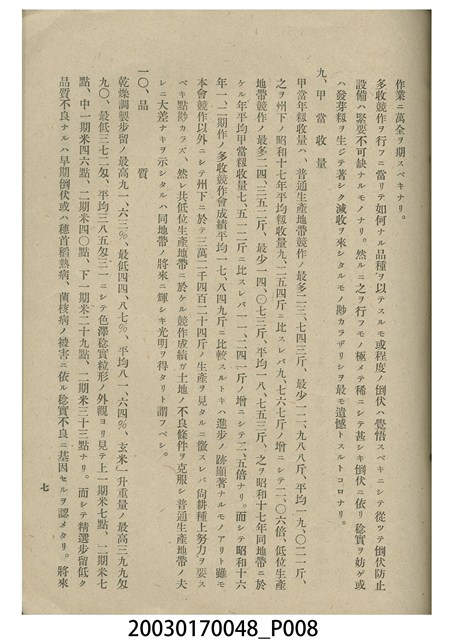 作業ニ萬全ヲ期スベキナリ。
多收競作ヲ行フニ當リテ如何ナル品種ヲ以テスルモ或程度ノ倒伏ハ覺悟スベキニシテ從ツテ倒伏防止
設備ハ緊要不可缺ナルモノナリ。然ルニ之ヲ行フモノ極メテ稀ニシテ甚シキ倒伏ニ依リ稔實ヲ妨ゲ或
ハ發芽籾ヲ生ジテ著シク減收ヲ來シタルモノ尠カラザリシヲ最モ遺憾トスルトコロナリ。
九、甲當收量
甲當年籾收量ハ、普通生產地帶競作ノ最多二三、七四三斤、最少一二、九八八斤、平均一九、〇二一斤、
之ヲ州下ノ昭和十七年平均籾收量九、二五四斤ニ比スレバ九、七六七斤ノ增ニシテ二、〇六倍、低位生產
地帶競作ノ最多二四、三五二斤、最少一四、〇七三斤、平均一八、七五三斤、之ヲ昭和十七年同地帶ニ於
ケル年平均甲當籾收量七、五一二斤ニ比スレバ一一、二四一斤ノ增ニシテ二、五倍ナリ。而シテ昭和十六
年一、二期作ノ多收競作會成績平均一七、八四九斤ニ比較スルトキハ進步ノ跡顯著ナルモノアリト雖モ
本會競作以外ニシテ州下ニ於テ三萬二千四百二十四斤ノ生產ヲ見タルニ徵スレバ尙耕種上努力ヲ要ス
ベキ點尠カラズ、然レ共低位生產地帶ニ於ケル競作成績ガ土地ノ不良條件ヲ克服シ普通生產地帶ノ夫
レニ大差ナキヲ示シタルハ同地帶ノ將來ニ輝シキ光明ヲ得タリト謂フベシ。
一〇、品質
乾燥調製步留ノ最高九一、六三%、最低四四、八七%、平均八一、六四%、玄米一升重量ノ最高三九九匁
九〇、最低三七二匁、平均三八五匁三一ニシテ色澤稔實粒形ノ外觀ヨリ見テ上一期米七點、二期米七
點、中一期米四六點、二期米四〇點、下一期米二十九點、二期米三十三點ナリ。而シテ精選步留低ク
品質不良ナルハ早期倒伏或ハ穗首稻熱病、菌核病ノ被害ニ依ル稔實不良ニ基因セルヲ認メタリ。將來
七
20030170048_P008